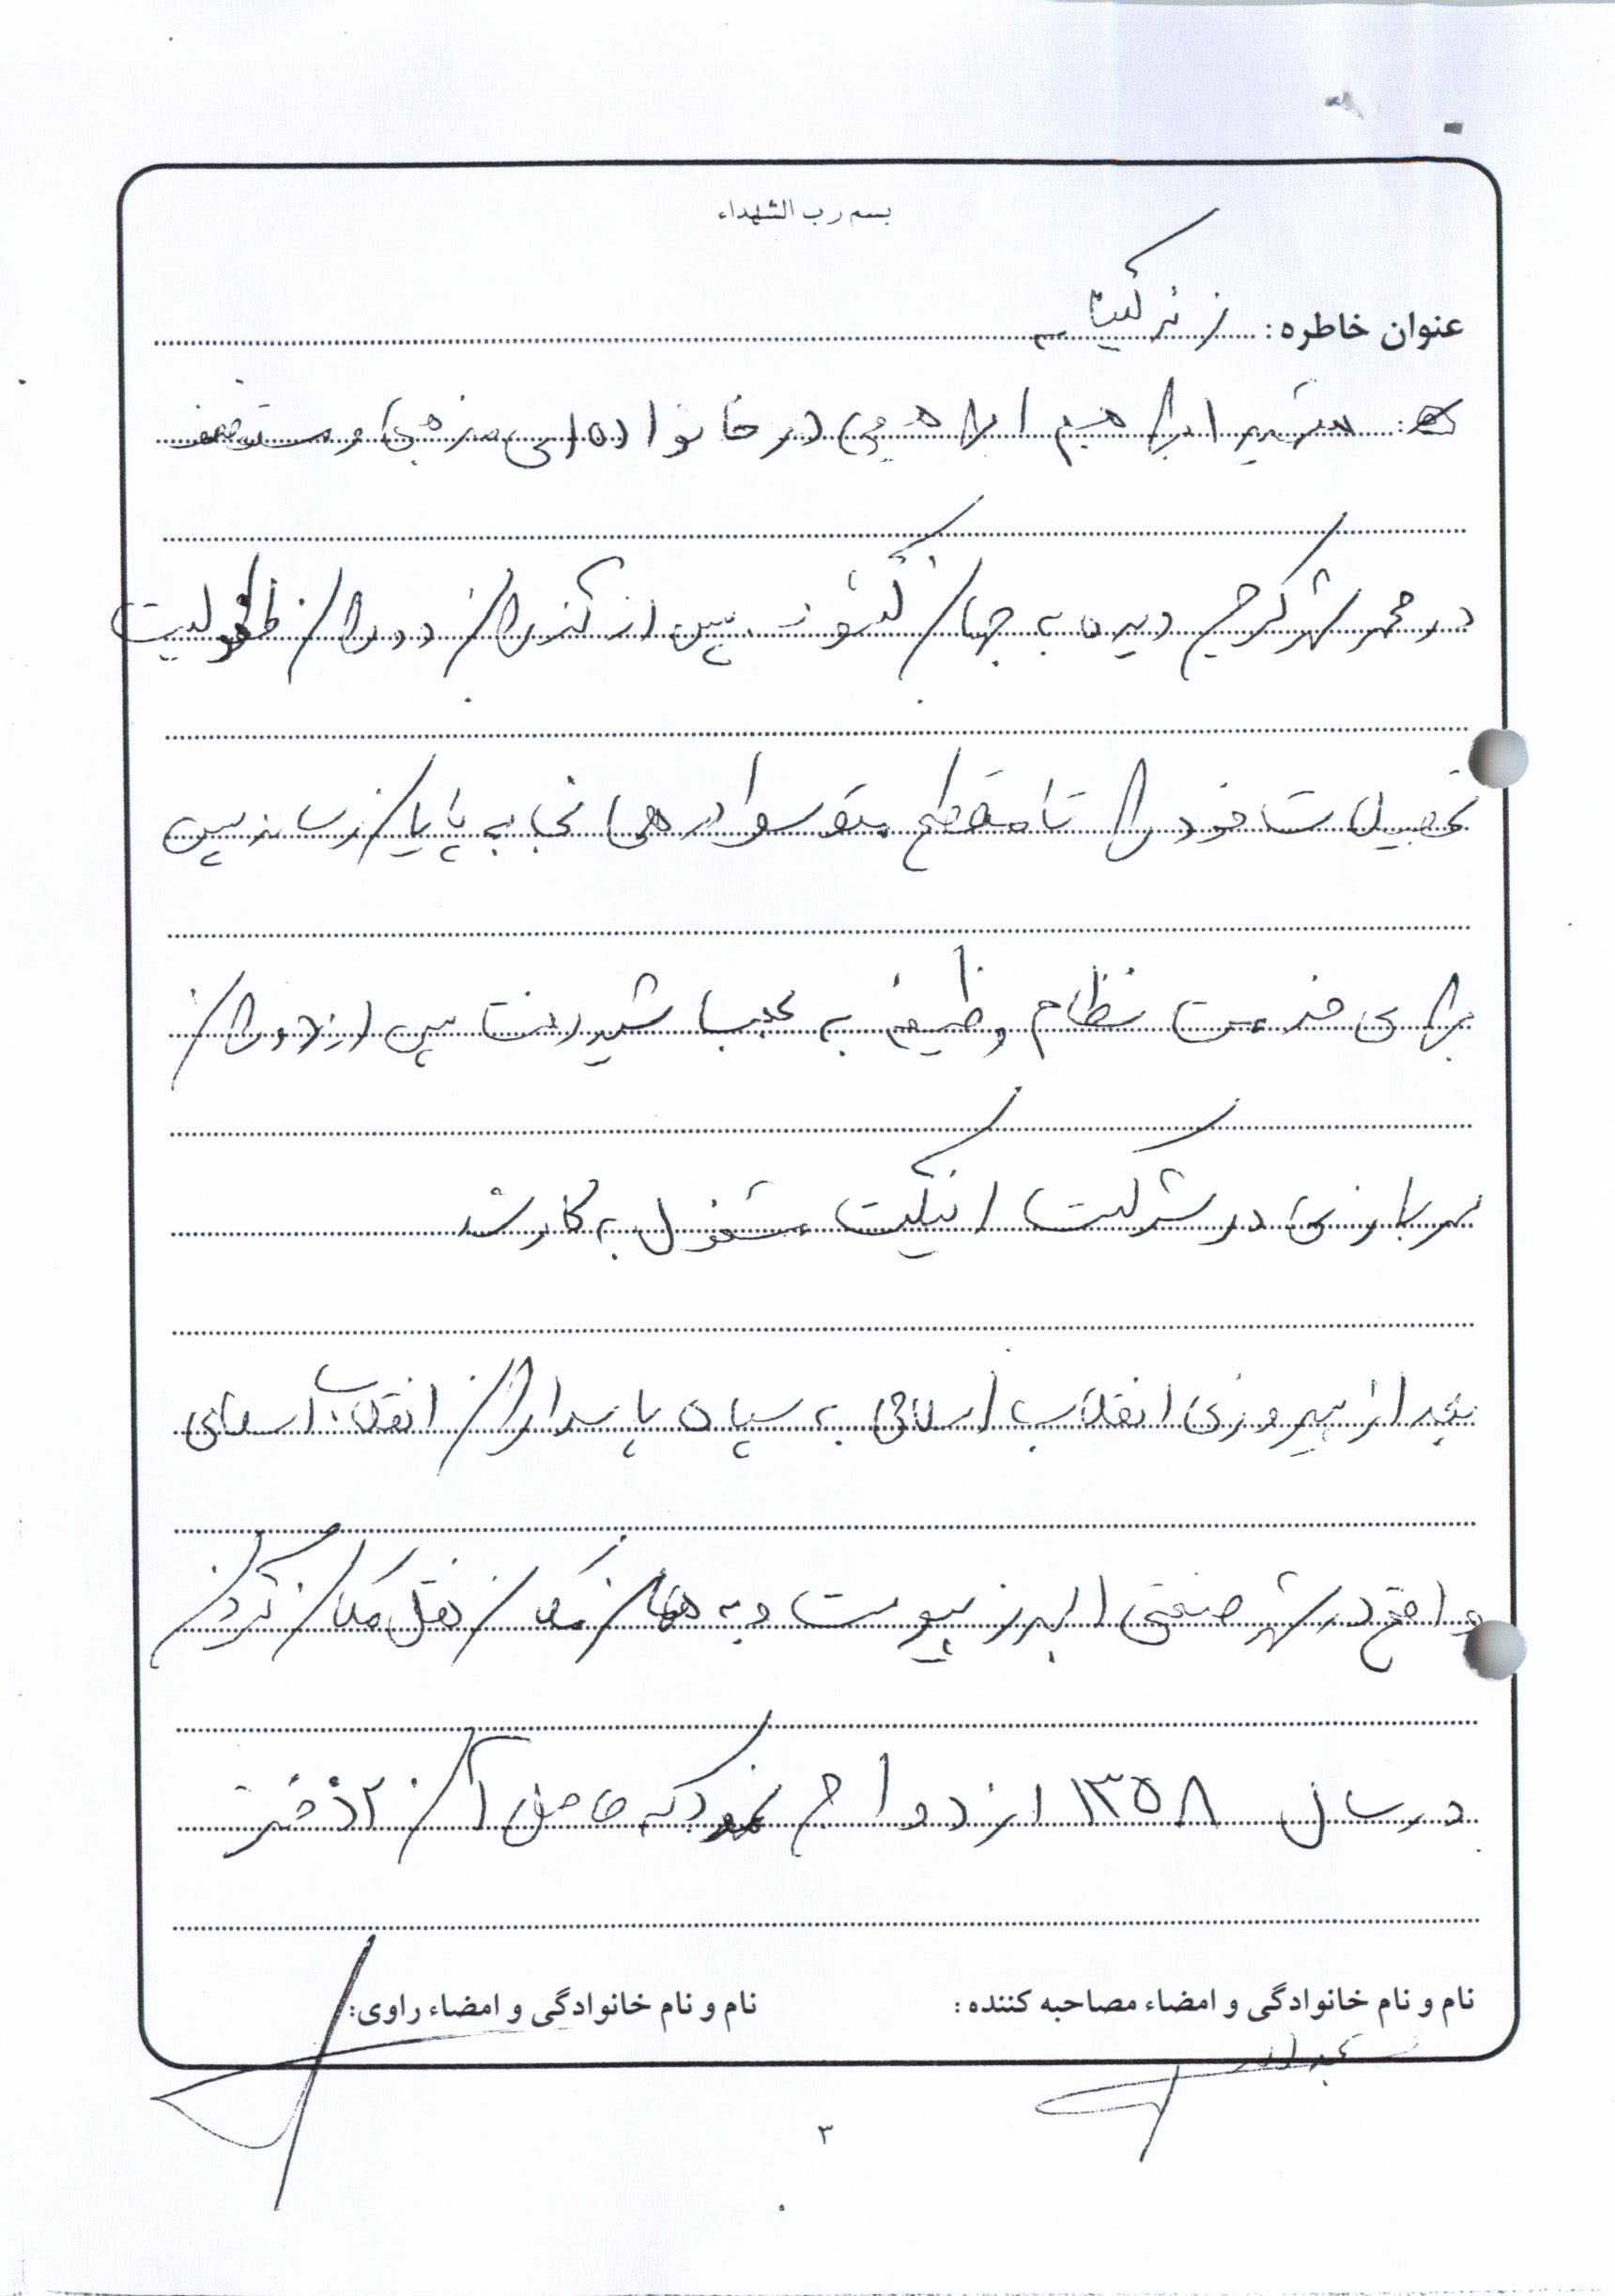 بسم رب الشهداء
عنوان خاطره: زندگینامه
شهید ابراهیم ابراهیمی در خانواده ای مذهبی و مستضعف
در محمد شهر کرج دیده به جهان گشود. پس از گذران دوران طفولیت
تحصیلات خود را تا مقطع متوسطه در همانجا به پایان رساند سپس
برای خدمت نظام وظیفه به عجب شیر رفت پس از دوران
سربازی در شرکت مشغول به کار شد
بعد از پیروزی انقلاب اسلامی به سپاه پاسداران انقلاب اسلامی
واقع در شهر صنعتی البرز پیوست و به همان مکان نقل مکان کردن
در سال ۱۳۵۸ ازدواج نمود که حاصل آن ۲ دختر
نام و نام خانوادگی و امضاء مصاحبه کننده:
نام و نام خانوادگی و امضاء راوی:
۳